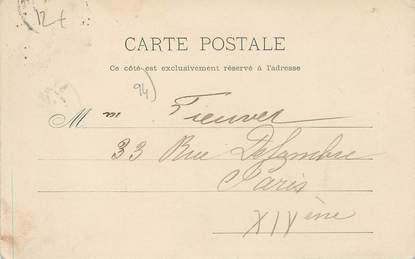 12
CARTE POSTALE
Ce côté est exclusivement réservé à l'adresse
94)
M me Fieuvet
33 Rue Delambre
Paris
XIVème